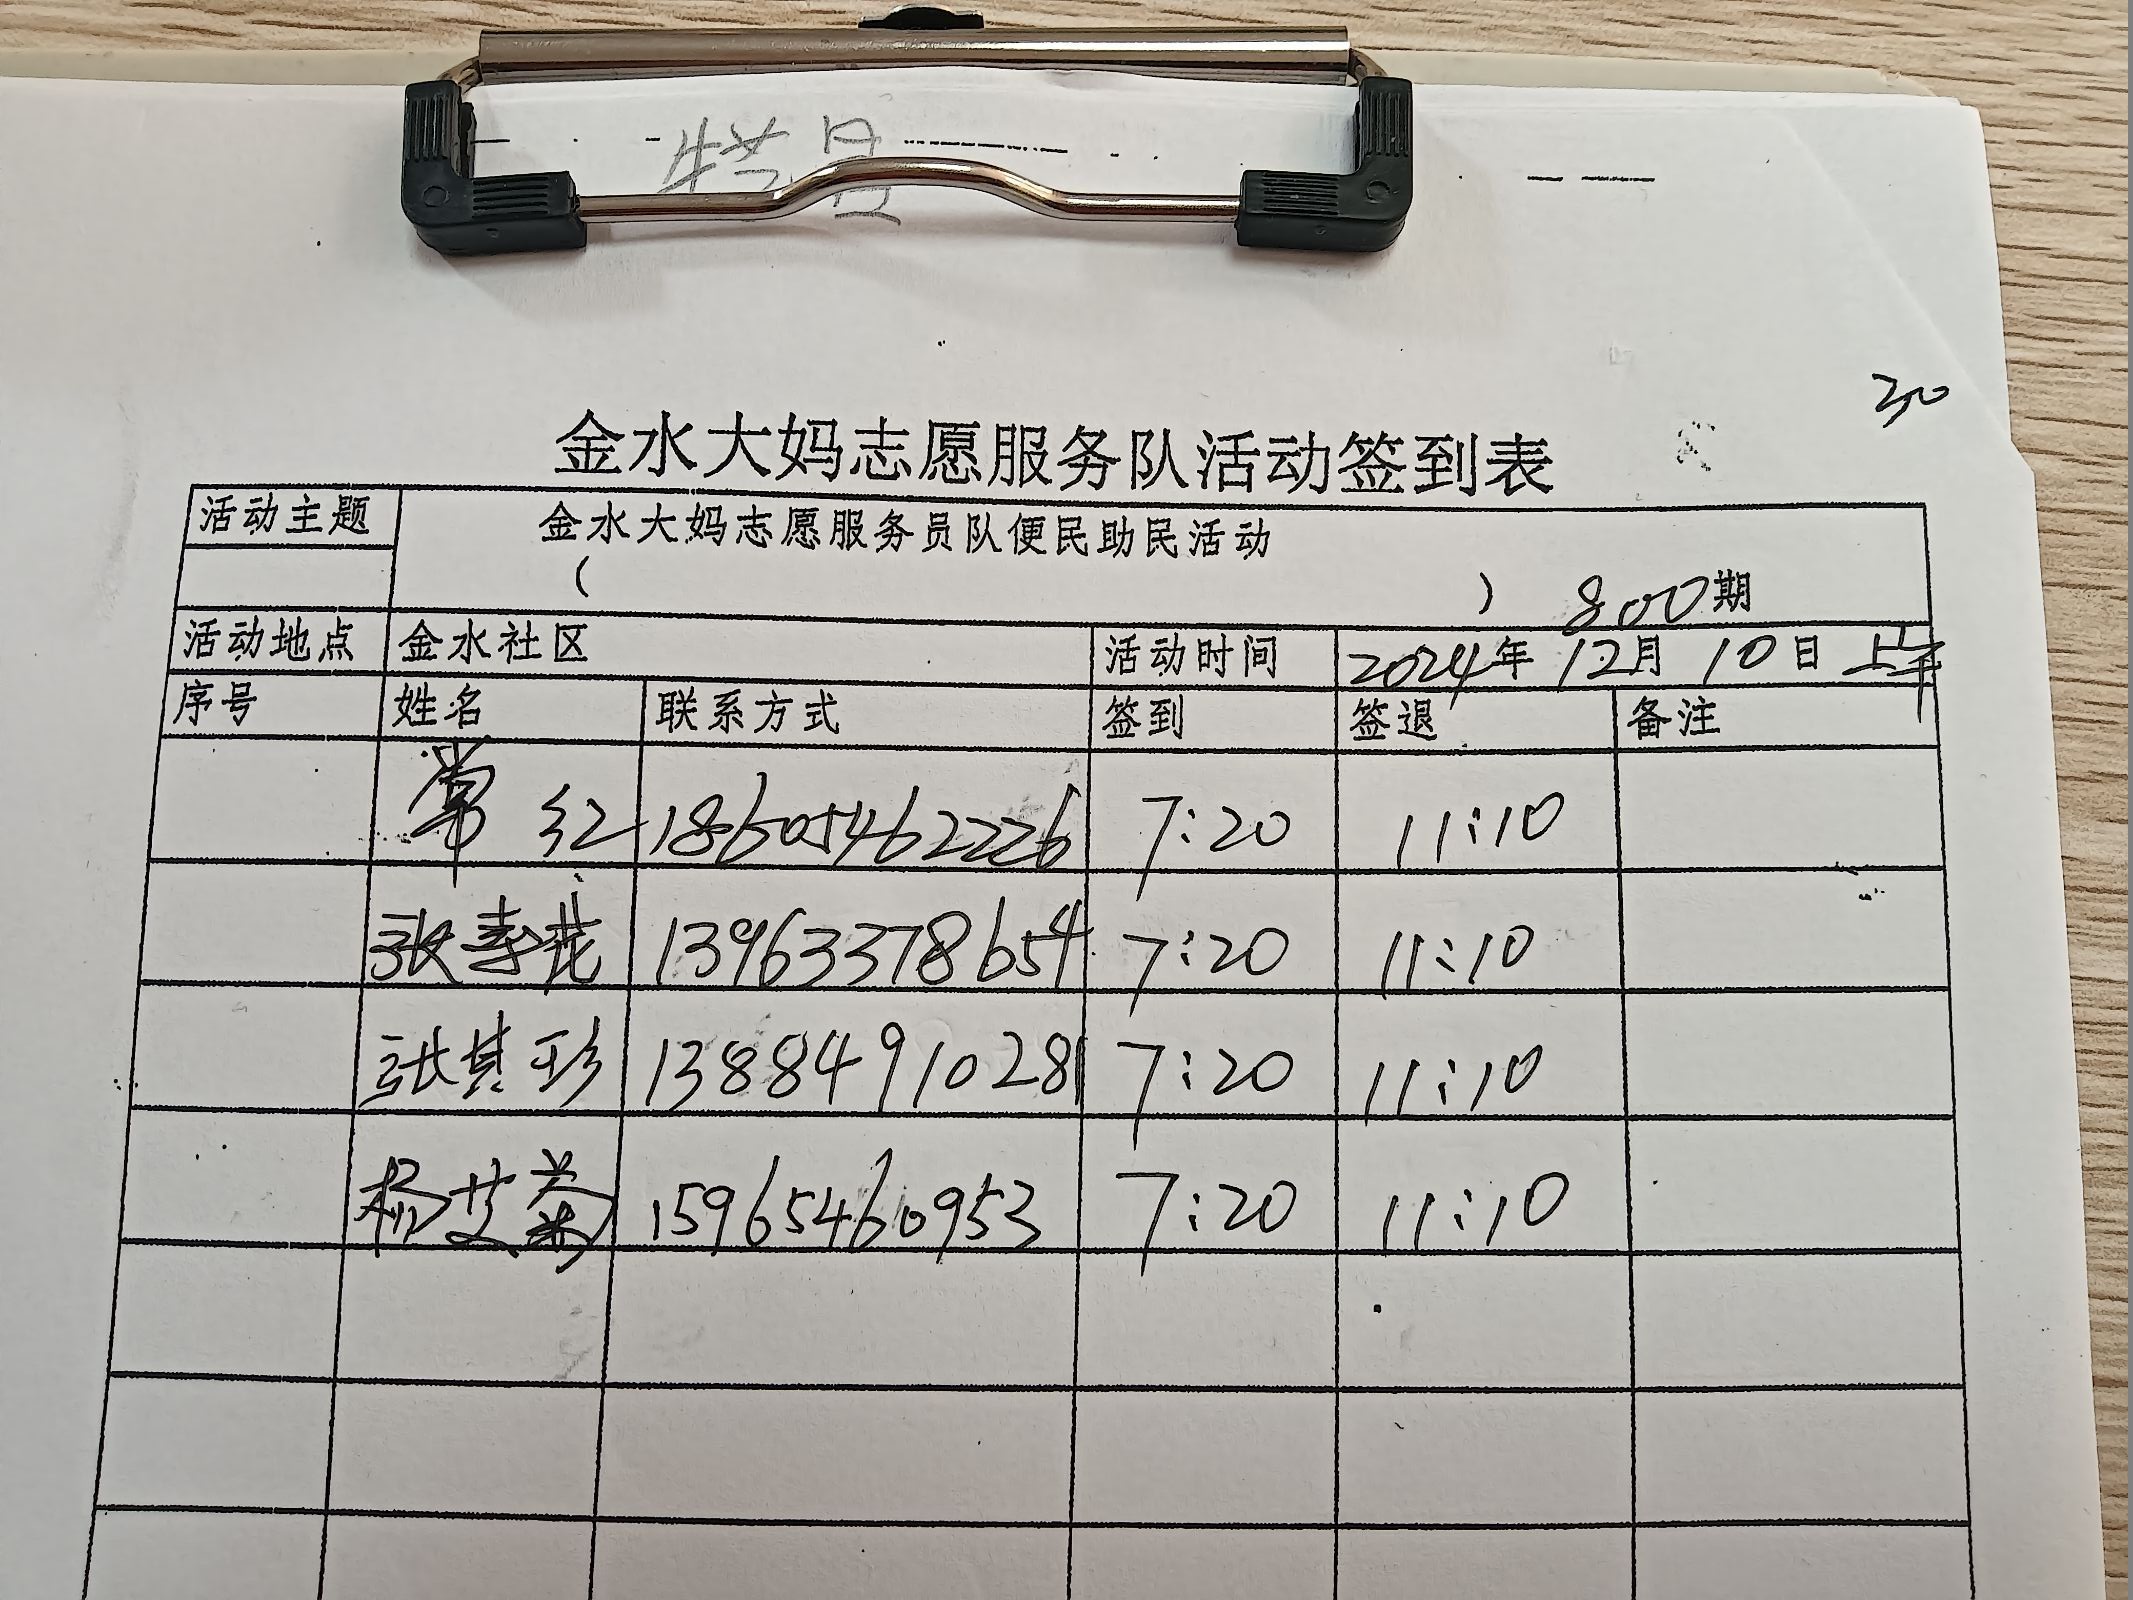 30
金水大妈志愿服务队活动签到表
活动主题 金水大妈志愿服务员队便民助民活动
( ) 800期
活动地点 金水社区 活动时间 2024年 12月 10日 上午
序号 姓名 联系方式 签到 签退 备注
常红 18605462226 7:20 11:10
张春花 13963378654 7:20 11:10
张其珍 13884910281 7:20 11:10
杨艾菊 15965460953 7:20 11:10